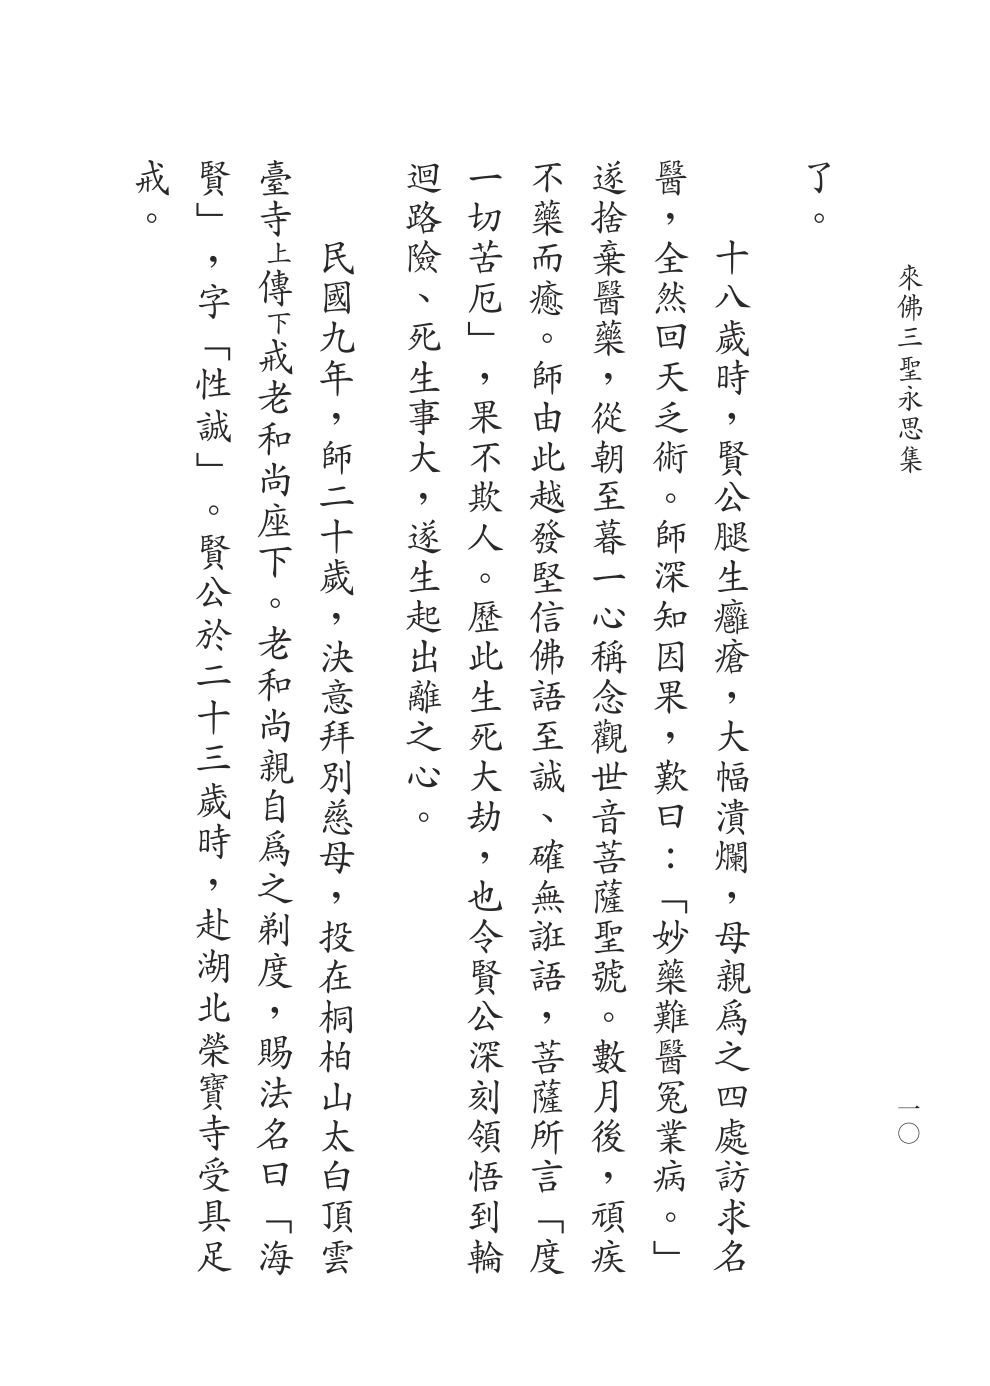 來佛三聖永思集
一〇
了。
十八歲時，賢公腿生癰瘡，大幅潰爛，母親爲之四處訪求名
醫，全然回天乏術。師深知因果，歎曰：「妙藥難醫冤業病。」
遂捨棄醫藥，從朝至暮一心稱念觀世音菩薩聖號。數月後，頑疾
不藥而癒。師由此越發堅信佛語至誠、確無誑語，菩薩所言「度
一切苦厄」，果不欺人。歷此生死大劫，也令賢公深刻領悟到輪
迴路險、死生事大，遂生起出離之心。
民國九年，師二十歲，決意拜別慈母，投在桐柏山太白頂雲
臺寺上傳下戒老和尚座下。老和尚親自爲之剃度，賜法名曰「海
賢」，字「性誠」。賢公於二十三歲時，赴湖北榮寶寺受具足
戒。